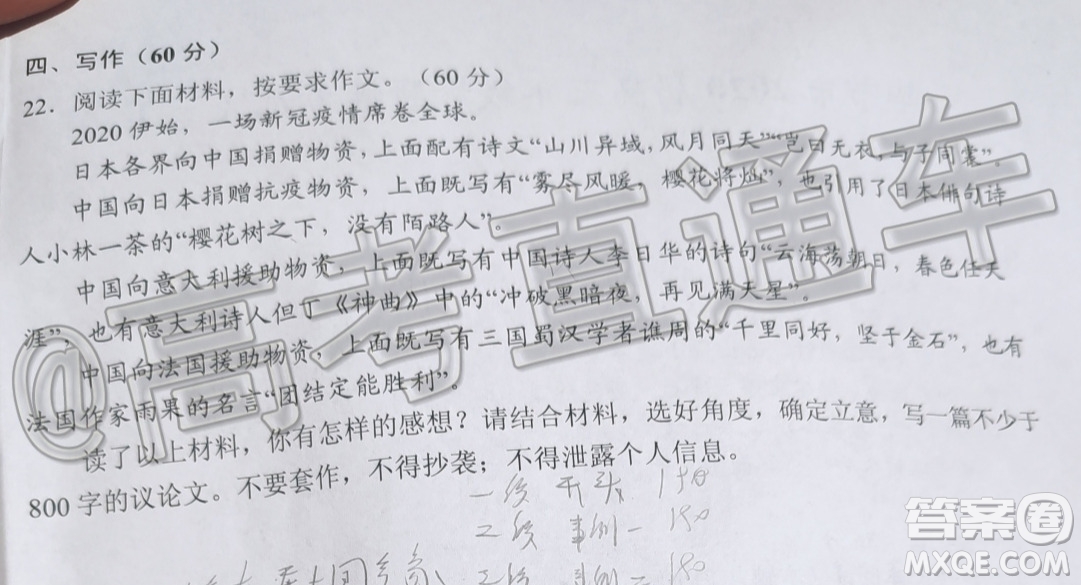 四、写作（60分）
22．阅读下面材料，按要求作文。（60分）
2020伊始，一场新冠疫情席卷全球。
日本各界向中国捐赠物资，上面配有诗文“山川异域，风月同天”“岂曰无衣，与子同裳”。
中国向日本捐赠抗疫物资，上面既写有“雾尽风暖，樱花将灿”，也引用了日本俳句诗
人小林一茶的“樱花树之下，没有陌路人”。
中国向意大利援助物资，上面既写有中国诗人李日华的诗句“云海荡朝日，春色任天
涯”，也有意大利诗人但丁《神曲》中的“冲破黑暗夜，再见满天星”。
中国向法国援助物资，上面既写有三国蜀汉学者谯周的“千里同好，坚于金石”，也有
法国作家雨果的名言“团结定能胜利”。
读了以上材料，你有怎样的感想？请结合材料，选好角度，确定立意，写一篇不少于
800字的议论文。不要套作，不得抄袭；不得泄露个人信息。
一段 开头
二段 事例一 180
180
@高考直通车
答案圈
MXQE.COM